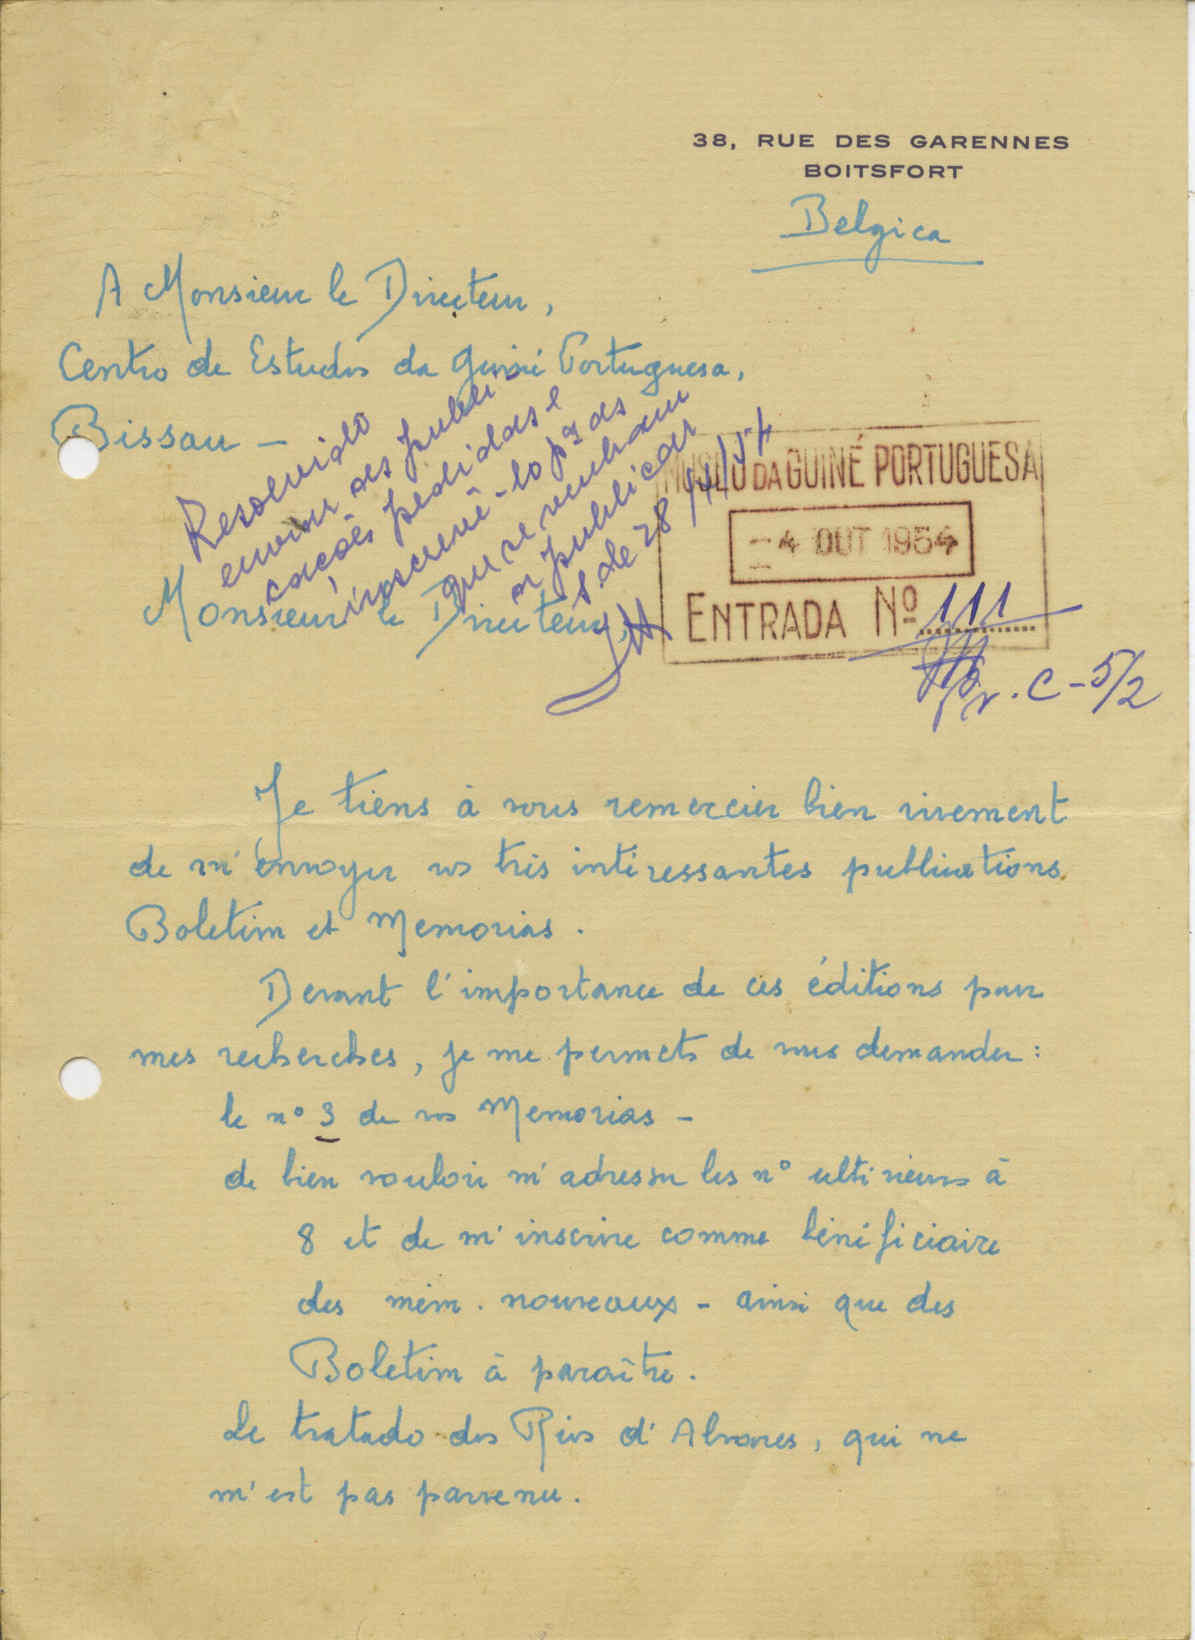 38, RUE DES GARENNES
BOITSFORT
Belgica
A Monsieur le Directeur,
Centro de Estudos da Guiné Portuguesa,
Bissau -
Resolvido
enviar as publi-
cacões pedidas e
inscrevê-lo pª as
que se venham
a publicar
de 28
MUSEU DA GUINÉ PORTUGUESA
-4 OUT 1954
ENTRADA Nº 111
Pr. C-5/2
Monsieur le Directeur,
Je tiens à vous remercier bien vivement
de m'envoyer vos très intéressantes publications,
Boletim et Memorias.
Devant l'importance de ces éditions pour
mes recherches, je me permets de vous demander :
le n° 3 de vos Memorias -
de bien vouloir m'adresser les n° ultérieurs à
8 et de m'inscrire comme bénéficiaire
des mém. nouveaux - ainsi que des
Boletim à paraître.
Le tratado dos Rios d'Alvares, qui ne
m'est pas parvenu.